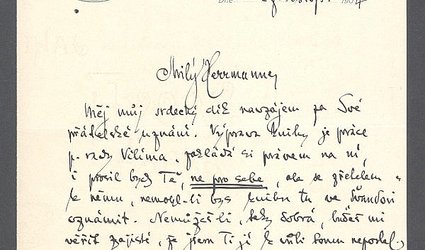 Dne
Milý Herrmanne,
Měj můj srdečný dík navzájem za Své
přátelské uznání. Výprava knihy je práce
p. rady Vilíma, zakládá si právem na ní,
i prosil bych Tě, ne pro sebe, ale se zřetelem
k němu, nemohl-li bys knihu tu ve Švandovi
oznámit. Nemůžeš-li, taky dobrá, budeš mi
věřit zajisté, že jsem Ti je k vůli tomu neposlal,